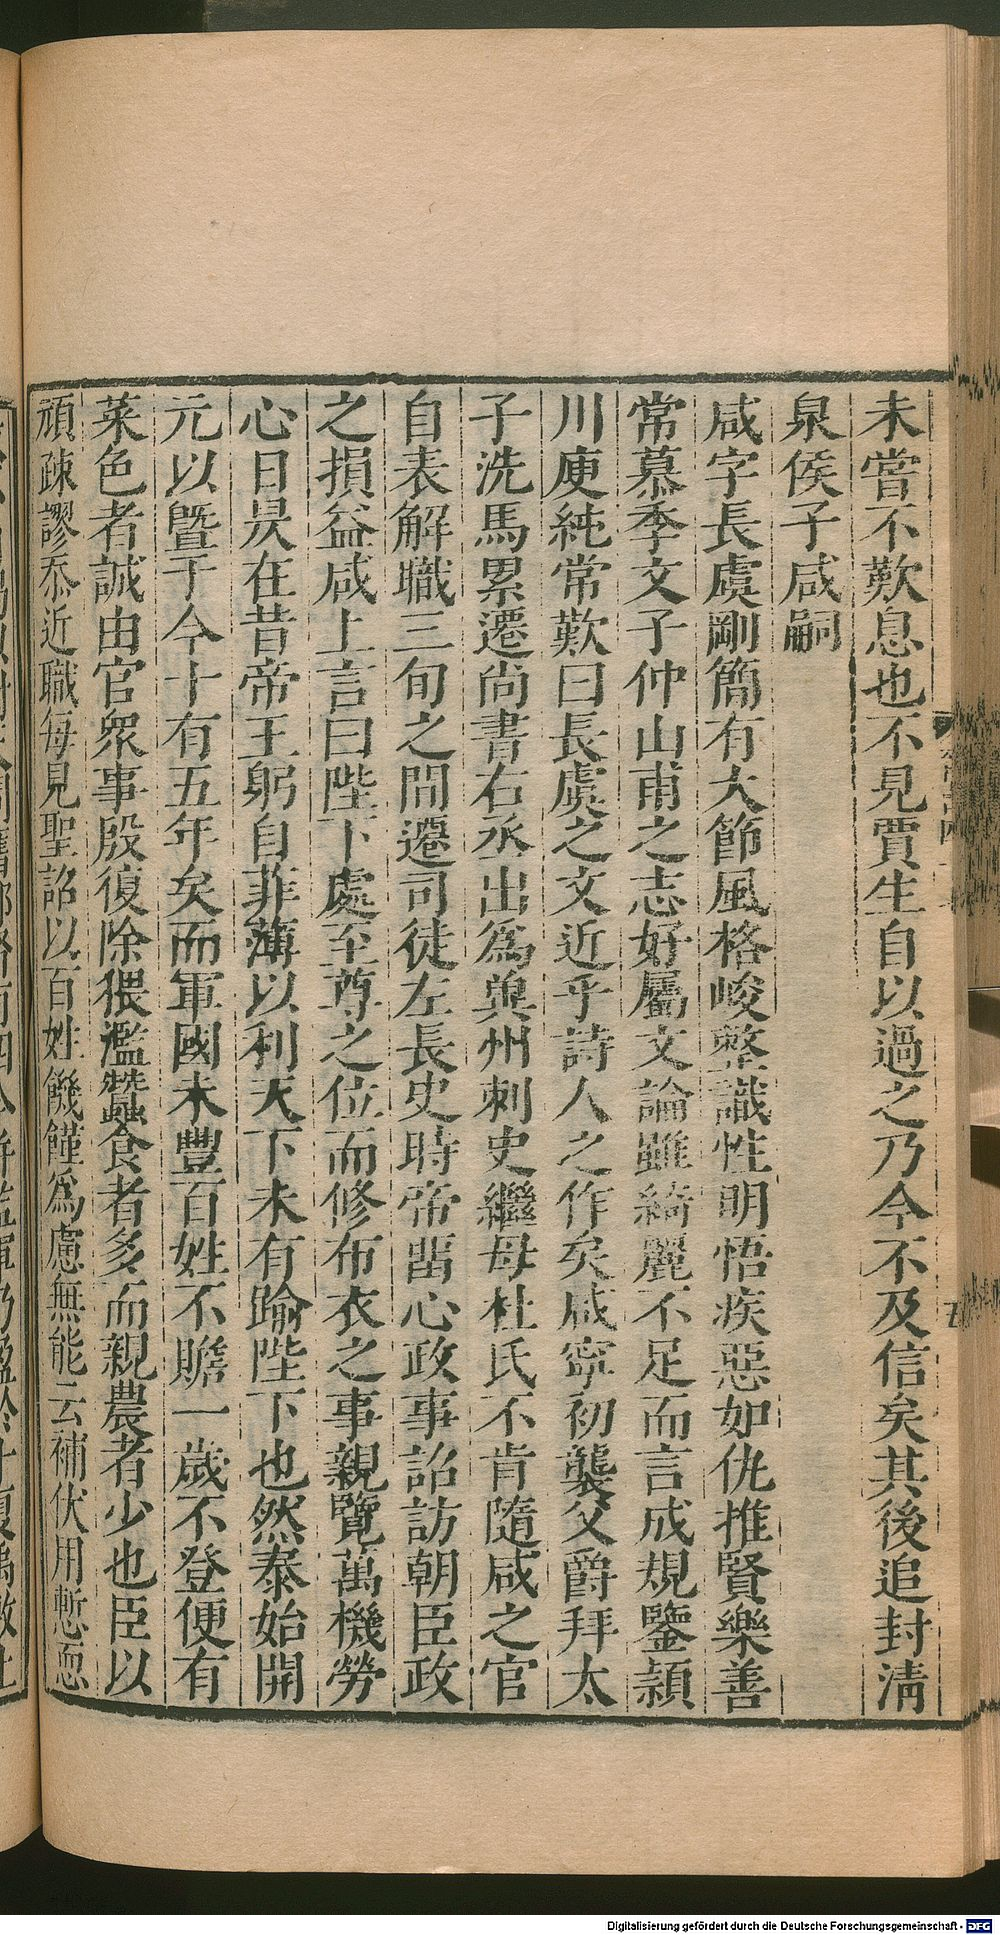 未嘗不歎息也不見賈生自以過之乃今不及信矣其後追封清
泉侯子咸嗣
咸字長虞剛簡有大節風格峻整識性明悟疾惡如仇推賢樂善
常慕季文子仲山甫之志好屬文論雖綺麗不足而言成規鑒潁
川庾純常歎曰長虞之文近乎詩人之作矣咸寧初襲父爵拜太
子洗馬累遷尚書右丞出爲兾州刺史繼母杜氏不肯隨咸之官
自表解職三旬之間遷司徒左長史時帝畱心政事詔訪朝臣政
之損益咸上言曰陛下處至尊之位而修布衣之事親覽萬機勞
心日昃在昔帝王躬自菲薄以利天下未有踰陛下也然泰始開
元以曁于今十有五年矣而軍國未豐百姓不贍一歲不登便有
菜色者誠由官衆事殷復除猥濫蠶食者多而親農者少也臣以
頑疎謬忝近職每見聖詔以百姓饑饉爲慮無能云補伏用慙恧
Digitalisierung gefördert durch die Deutsche Forschungsgemeinschaft - DFG